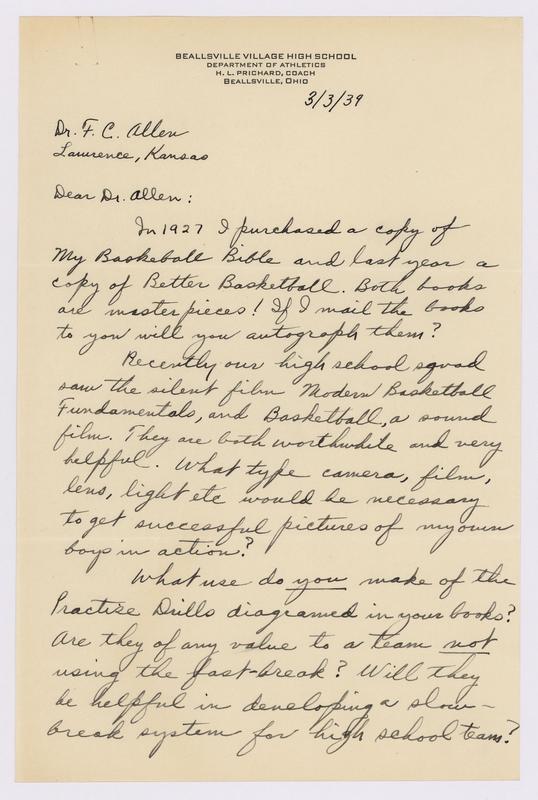 BEALLSVILLE VILLAGE HIGH SCHOOL
DEPARTMENT OF ATHLETICS
H. L. PRICHARD, COACH
BEALLSVILLE, OHIO
3/3/39
Dr. F. C. Allen
Lawrence, Kansas
Dear Dr. Allen:
In 1927 I purchased a copy of
My Basketball Bible and last year a
copy of Better Basketball. Both books
are masterpieces! If I mail the books
to you will you autograph them?
Recently our high school squad
saw the silent film Modern Basketball
Fundamentals, and Basketball, a sound
film. They are both worthwhile and very
helpful. What type camera, film,
lens, light etc would be necessary
to get successful pictures of my own
boys in action?
What use do you make of the
Practize Drills diagramed in your books?
Are they of any value to a team not
using the fast-break? Will they
be helpful in developing a slow-
break system for high school team?